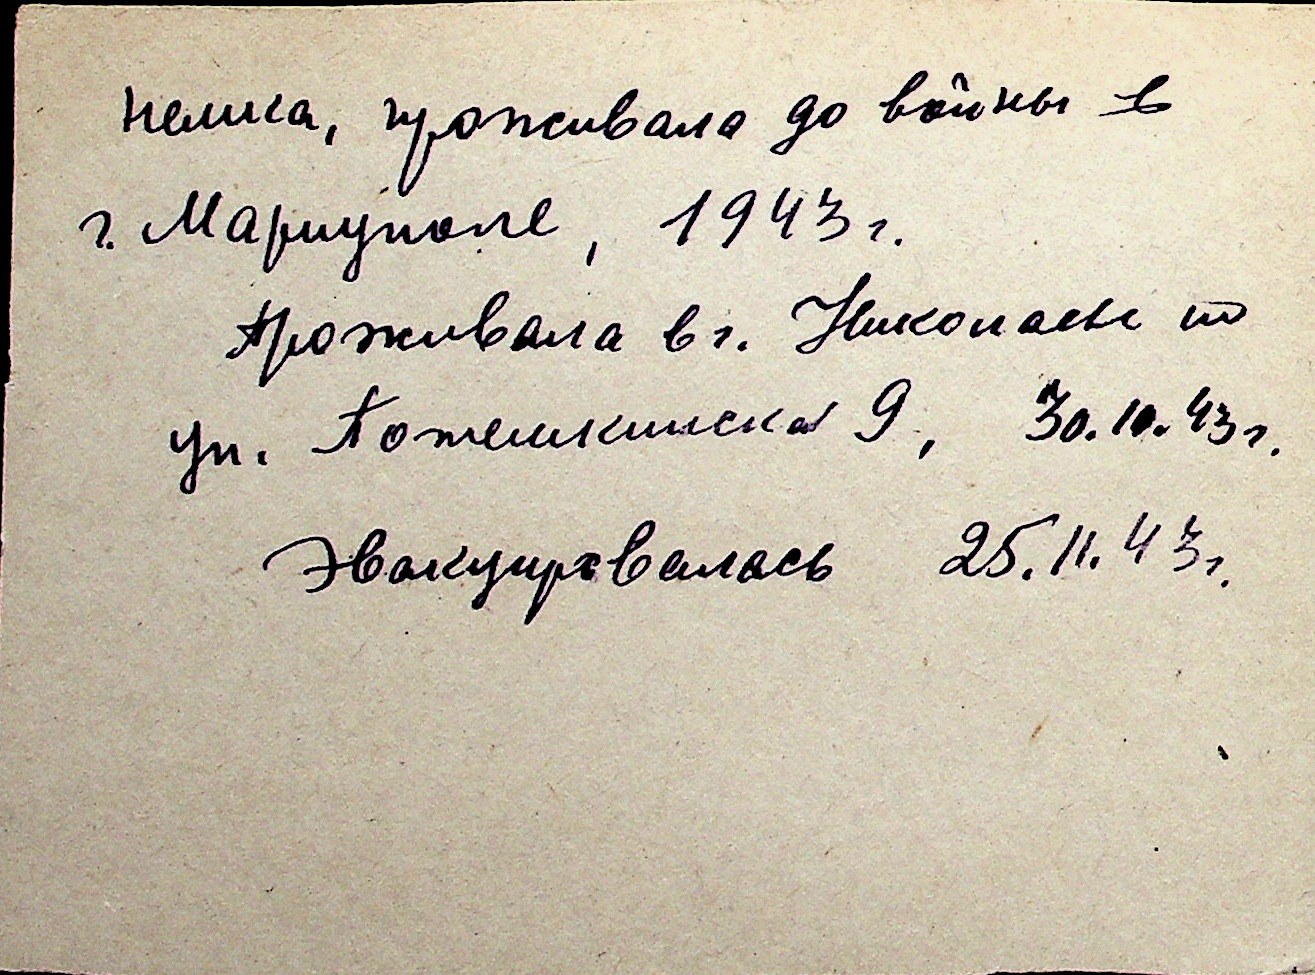 немка, проживала до войны в
г. Мариуполе, 1943 г.
Проживала в г. Николаеве по
ул. Потемкинская 9, 30.10.43 г.
Эвакуировалась 25.11.43 г.